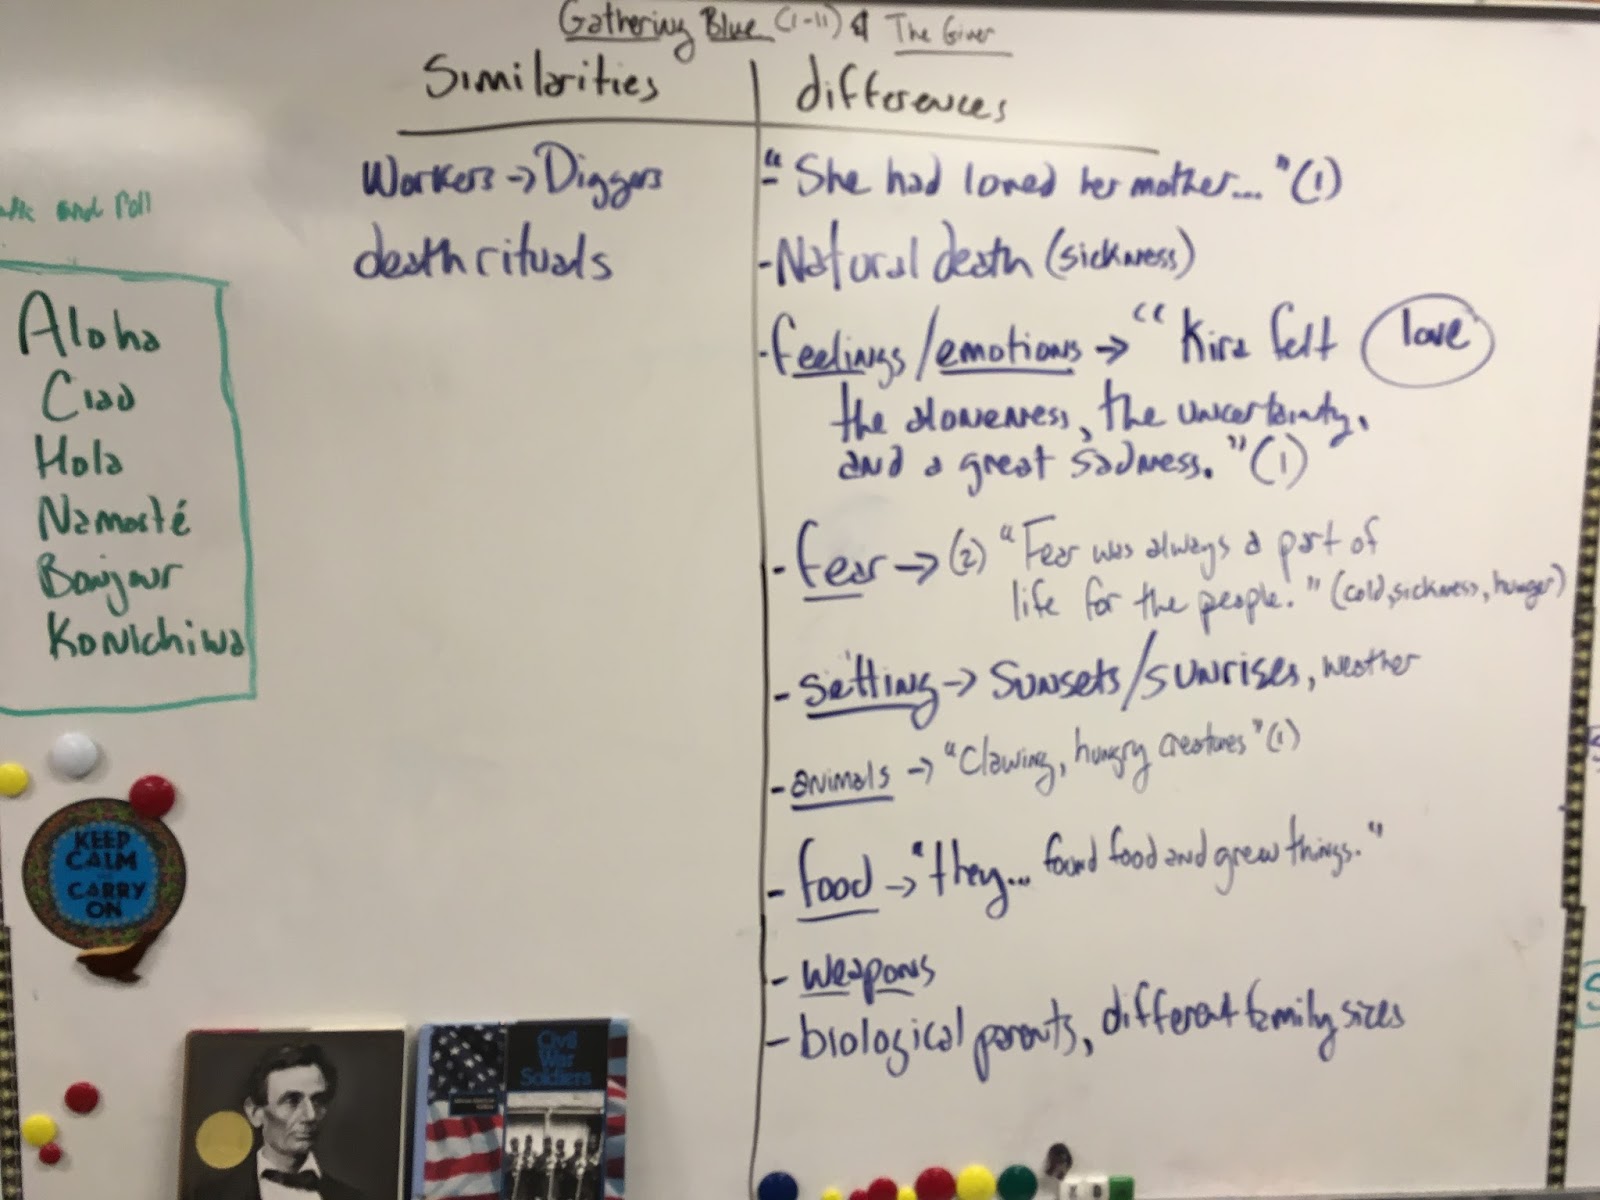 Gathering Blue (1-11) & The Giver
Similarities
differences
Workers → Diggers
death rituals
"She had loved her mother..." (1)
- Natural death (sickness)
- feelings/emotions → "Kira felt love
the aloneness, the uncertainty,
and a great sadness." (1)
- fear → (2) "Fear was always a part of
life for the people." (cold, sickness, hunger)
- setting → sunsets/sunrises, weather
- animals → "clawing, hungry creatures" (1)
- food → "they... found food and grew things."
- weapons
- biological parents, different family sizes
and Poll
Aloha
Ciao
Hola
Namasté
Bonjour
Konichiwa
KEEP
CALM
CARRY
ON
Civil
War
Soldiers